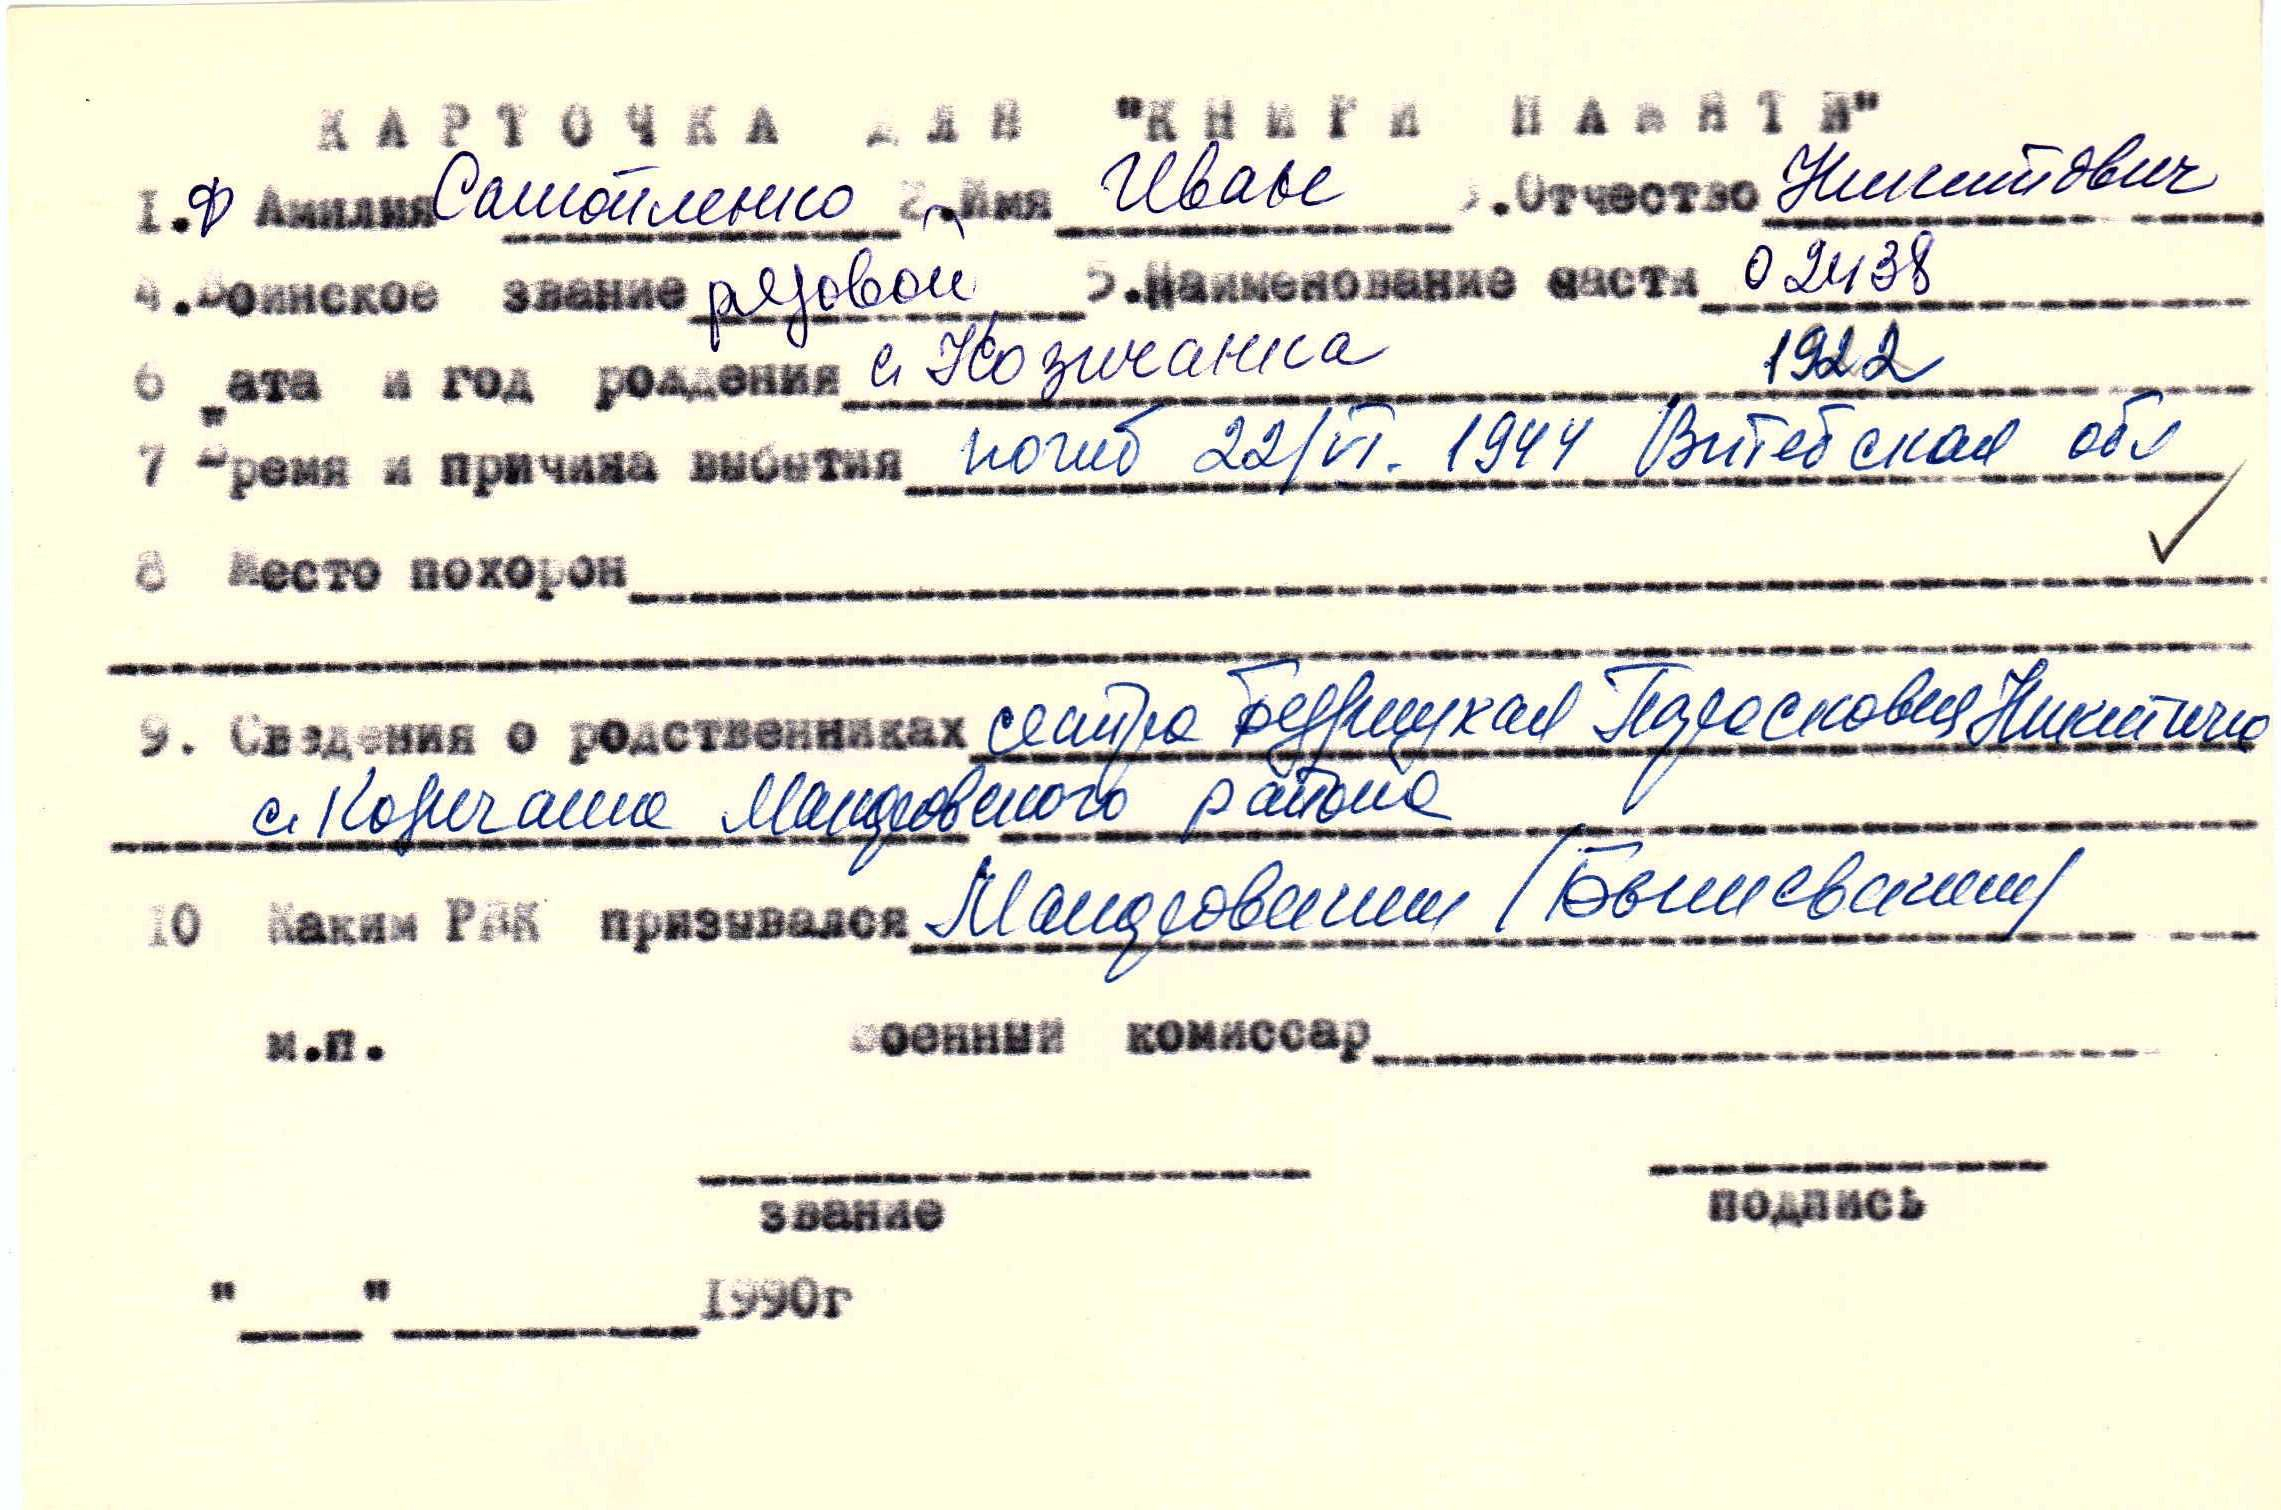 КАРТОЧКА ДЛЯ "КНИГИ ПАМЯТИ"
1.Фамилия Самойленко 2.Имя Иван 3.Отчество Никитович
4.Воинское звание рядовой 5.Наименование части 02438
6 Дата и год рождения с. Козичанка 1922
7 Время и причина выбытия погиб 22/VI. 1944 Витебская обл
8 Место похорон
9. Сведения о родственниках сестра Парасковия Никитична
с. Козичанка Макаровского района
10 Каким РВК призывался Макаровским
м.п. Военный комиссар
звание подпись
" " 1990г